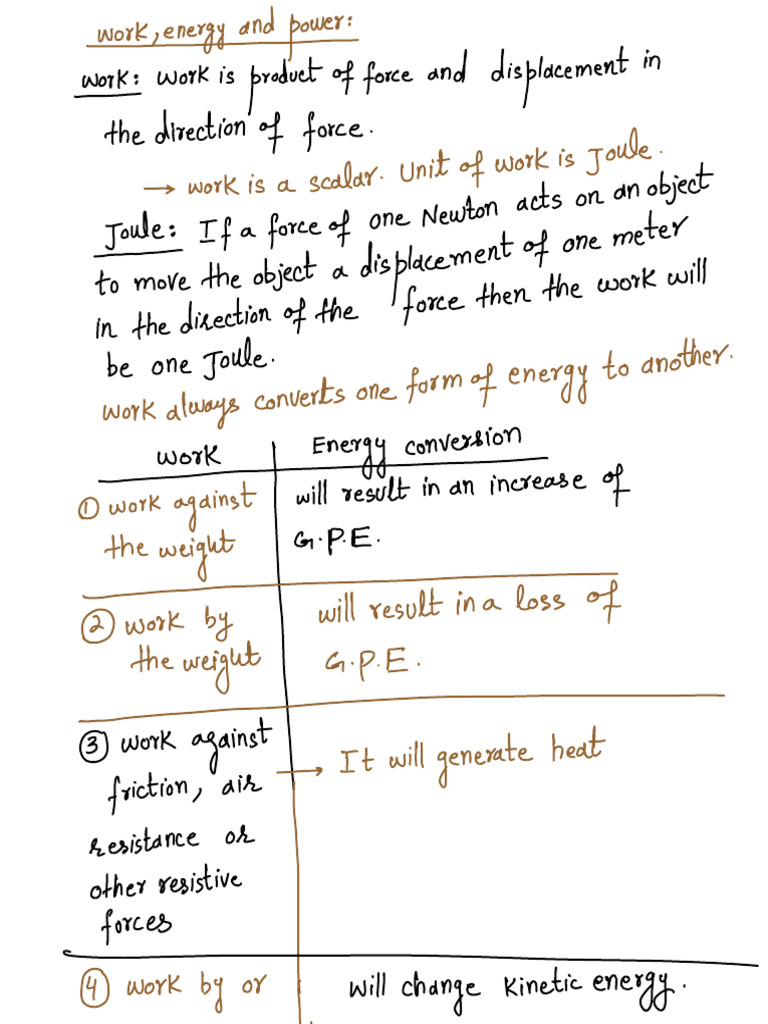 work, energy and power:
work: work is product of force and displacement in
the direction of force.
→ work is a scalar. Unit of work is Joule.
Joule: If a force of one Newton acts on an object
to move the object a displacement of one meter
in the direction of the force then the work will
be one Joule.
work always converts one form of energy to another.
work Energy conversion
① work against will result in an increase of
the weight G.P.E.
② work by will result in a loss of
the weight G.P.E.
③ work against → It will generate heat
friction, air
resistance or
other resistive
forces
④ work by or will change kinetic energy.